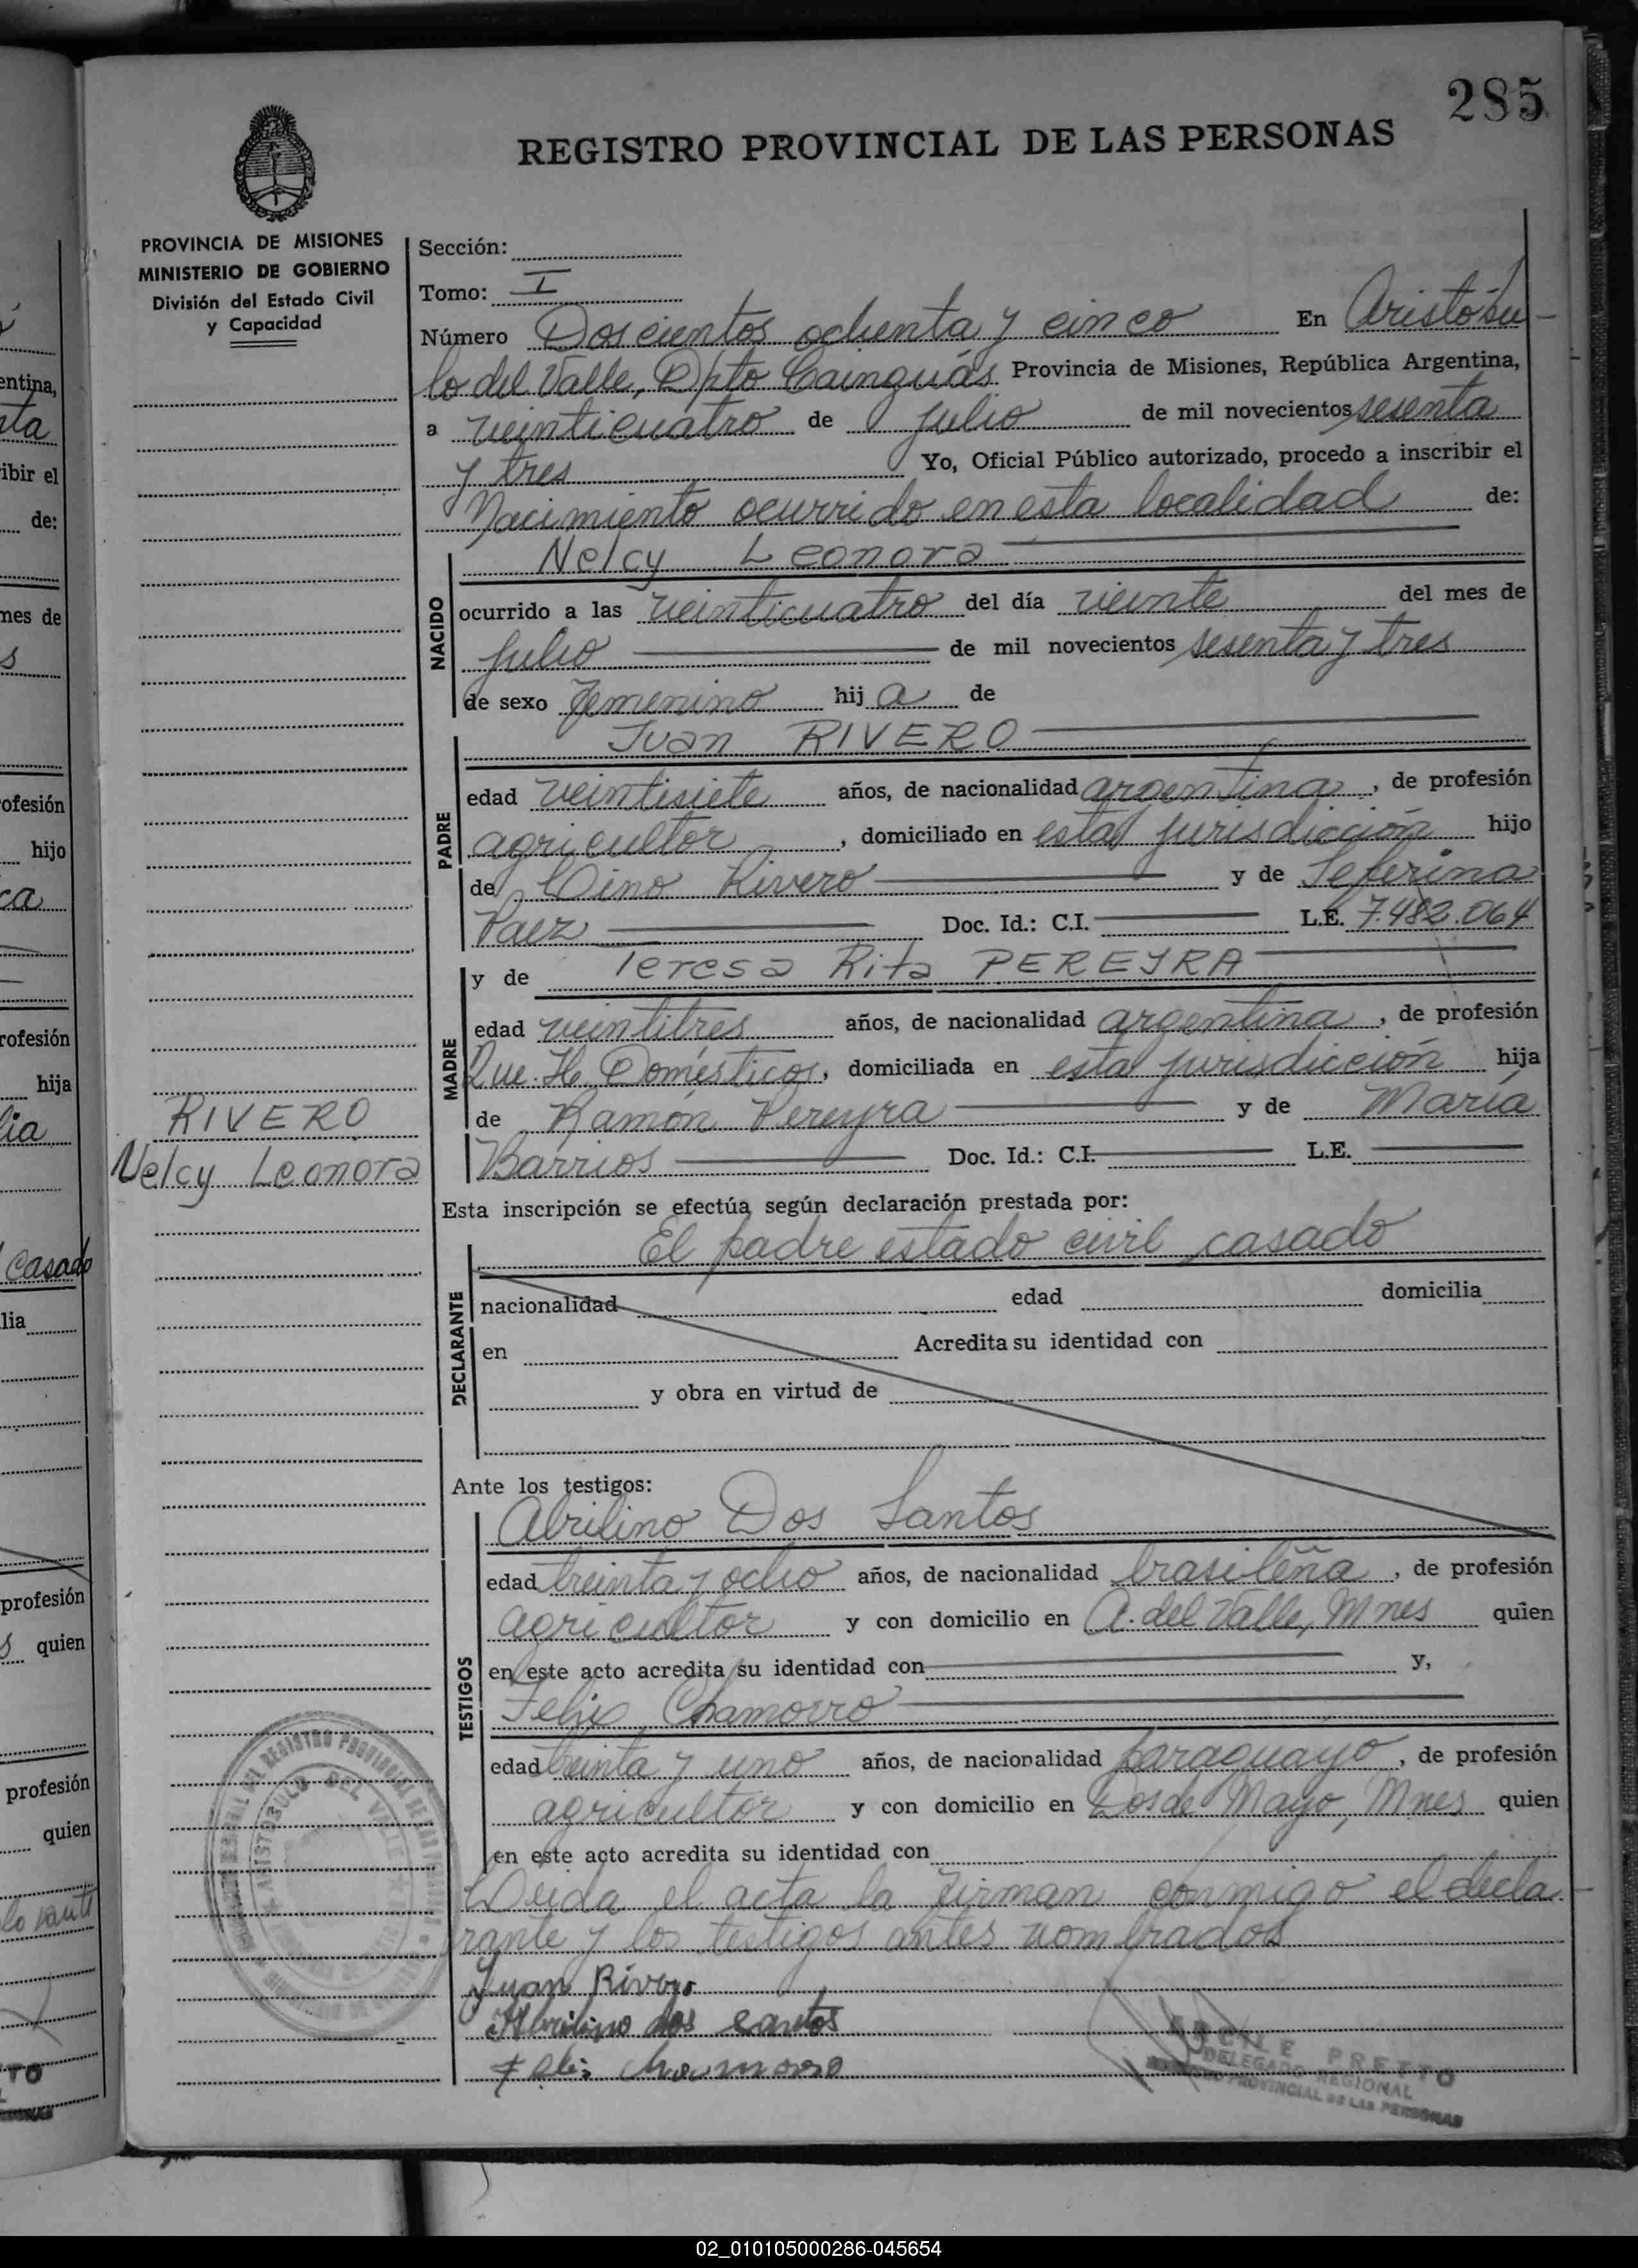 285
REGISTRO PROVINCIAL DE LAS PERSONAS
PROVINCIA DE MISIONES
MINISTERIO DE GOBIERNO
División del Estado Civil
y Capacidad
Sección:
Tomo: I
Número Doscientos ochenta y cinco En Aristóbu-
lo del Valle, Dpto Cainguás Provincia de Misiones, República Argentina,
a veinticuatro de julio de mil novecientos sesenta
y tres Yo, Oficial Público autorizado, procedo a inscribir el
Nacimiento ocurrido en esta localidad de:
NACIDO
Nelcy Leonora
ocurrido a las veinticuatro del día veinte del mes de
julio de mil novecientos sesenta y tres
de sexo femenino hija de
PADRE
Juan RIVERO
edad veintisiete años, de nacionalidad argentina, de profesión
agricultor, domiciliado en esta jurisdicción hijo
de Lino Rivero y de Seferina
Paez Doc. Id.: C.I. L.E. 7.482.064
MADRE
y de Teresa Rita PEREYRA
edad veintitres años, de nacionalidad argentina, de profesión
Que. H. Domésticos, domiciliada en esta jurisdicción hija
de Ramón Pereyra y de María
Barrios Doc. Id.: C.I. L.E.
RIVERO
Nelcy Leonora
Esta inscripción se efectúa según declaración prestada por:
El padre estado civil casado
DECLARANTE
nacionalidad edad domicilia
en Acredita su identidad con
y obra en virtud de
Ante los testigos:
TESTIGOS
Abrilino Dos Santos
edad treinta y ocho años, de nacionalidad brasileña, de profesión
agricultor y con domicilio en A. del Valle, Mnes quien
en este acto acredita su identidad con y,
Felix Chamorro
edad treinta y uno años, de nacionalidad paraguayo, de profesión
agricultor y con domicilio en Dos de Mayo, Mnes quien
en este acto acredita su identidad con
Leida el acta la firman conmigo el decla-
rante y los testigos antes nombrados
Juan Rivero
Abrilino dos santos
Felix Chamorro
PRETTO
DELEGADO REGIONAL
REGISTRO PROVINCIAL DE LAS PERSONAS
ARISTOBULO DEL VALLE
entina,
ibir el
de:
mes de
ofesión
hijo
rofesión
hija
casado
lia
profesión
quien
profesión
quien
02_010105000286-045654